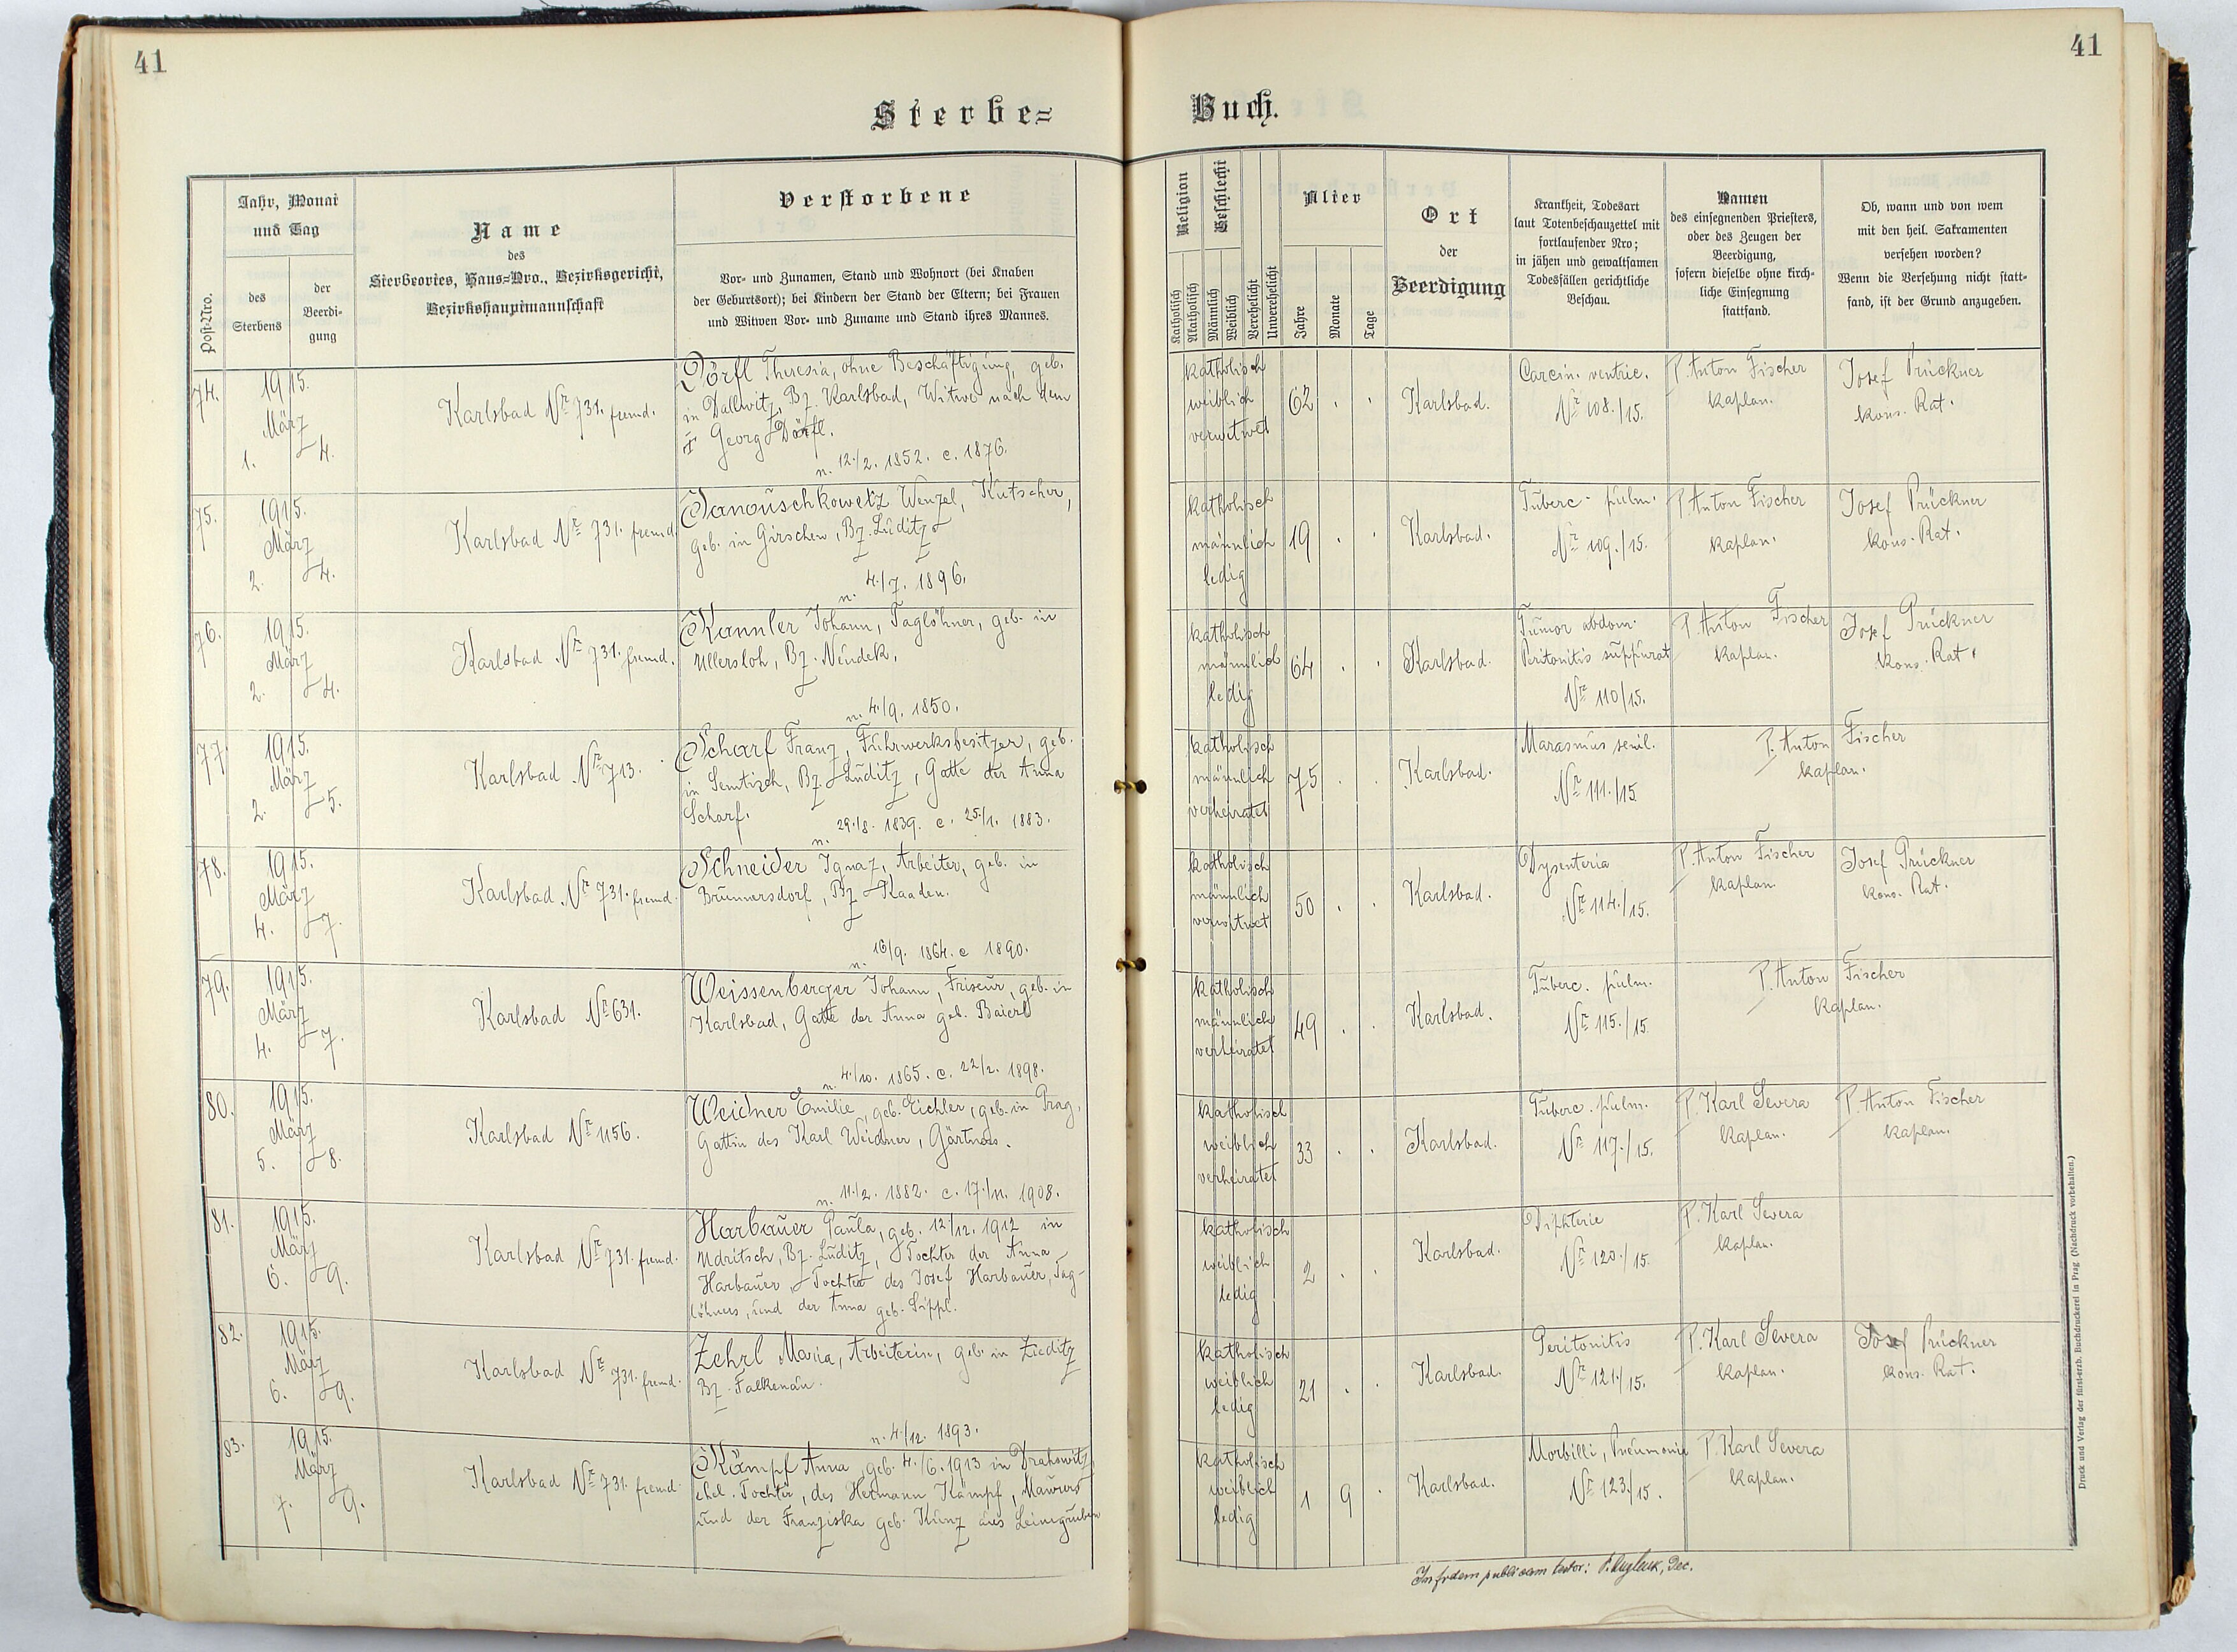 41
41
Sterbe=
Buch.
Post-Nro.
Jahr, Monat
und Tag
des
Sterbens
der
Beerdi-
gung
Name
des
Sterbeortes, Haus=Nro., Bezirksgericht,
Bezirkshauptmannschaft
Verstorbene
Vor- und Zunamen, Stand und Wohnort (bei Knaben
der Geburtsort); bei Kindern der Stand der Eltern; bei Frauen
und Witwen Vor- und Zuname und Stand ihres Mannes.
Religion
Katholisch
Akatholisch
Geschlecht
Männlich
Weiblich
Verehelicht
Unverehelicht
Alter
Jahre
Monate
Tage
Ort
der
Beerdigung
Krankheit, Todesart
laut Totenbeschauzettel mit
fortlaufender Nro;
in jähen und gewaltsamen
Todesfällen gerichtliche
Beschau.
Namen
des einsegnenden Priesters,
oder des Zeugen der
Beerdigung,
sofern dieselbe ohne kirch-
liche Einsegnung
stattfand.
Ob, wann und von wem
mit den heil. Sakramenten
versehen worden?
Wenn die Versehung nicht statt-
fand, ist der Grund anzugeben.
74.
1915.
März
1. 4.
Karlsbad Nr. 731. fremd.
Dörfl Theresia, ohne Beschäftigung, geb.
in Dallwitz, Bz. Karlsbad, Witwe nach dem
† Georg Dörfl.
n. 12./2. 1852. c. 1876.
katholisch
weiblich
verwitwet
62 . .
Karlsbad.
Carcin. ventric.
Nr. 108./15.
P. Anton Fischer
Kaplan.
Josef Prückner
kons. Rat.
75.
1915.
März
2. 4.
Karlsbad Nr. 731. fremd.
Janouschkowetz Wenzel, Kutscher,
geb. in Girschen, Bz. Luditz.
n. 4./7. 1896.
katholisch
männlich
ledig
19 . .
Karlsbad.
Tuberc. pulm.
Nr. 109./15.
P. Anton Fischer
Kaplan.
Josef Prückner
kons. Rat.
76.
1915.
März
2. 4.
Karlsbad Nr. 731. fremd.
Kannler Johann, Taglöhner, geb. in
Ullersloh, Bz. Neudek.
n. 4./9. 1850.
katholisch
männlich
ledig
64 . .
Karlsbad.
Tumor abdom.
Peritonitis suppurat
Nr. 110/15.
P. Anton Fischer
Kaplan.
Josef Prückner
kons. Rat.
77.
1915.
März
2. 5.
Karlsbad Nr. 713.
Scharf Franz, Fuhrwerksbesitzer, geb.
in Semtisch, Bz. Luditz, Gatte der Anna
Scharf.
n. 29./8. 1839. c. 25./1. 1883.
katholisch
männlich
verheiratet
75 . .
Karlsbad.
Marasmus senil.
Nr. 111./15
P. Anton Fischer
Kaplan.
78.
1915.
März
4. 7.
Karlsbad Nr. 731. fremd.
Schneider Ignaz, Arbeiter, geb. in
Brunnersdorf, Bz. Kaaden.
n. 16/9. 1864. c 1890.
katholisch
männlich
verwitwet
50 . .
Karlsbad.
Dysenteria
Nr. 114./15.
P. Anton Fischer
Kaplan.
Josef Prückner
kons. Rat.
79.
1915.
März
4. 7.
Karlsbad Nr. 631.
Weissenberger Johann, Friseur, geb. in
Karlsbad, Gatte der Anna geb. Baierl
n. 4./10. 1865. c. 22/2. 1898.
katholisch
männlich
verheiratet
49 . .
Karlsbad.
Tuberc. pulm.
Nr. 115./15.
P. Anton Fischer
Kaplan.
80.
1915.
März
5. 8.
Karlsbad Nr. 1156.
Weidner Emilie, geb. Eichler, geb. in Prag,
Gattin des Karl Weidner, Gärtners.
n. 11./2. 1882. c. 17./11. 1908.
katholisch
weiblich
verheiratet
33 . .
Karlsbad.
Tuberc. pulm.
Nr. 117./15.
P. Karl Severa
Kaplan.
P. Anton Fischer
Kaplan.
81.
1915.
März
6. 9.
Karlsbad Nr. 731. fremd.
Harbauer Paula, geb. 12./12. 1912 in
Udritsch, Bz. Luditz, Tochter der Anna
Harbauer, Tochter des Josef Harbauer, Tag-
löhners, und der Anna geb. Lippl.
katholisch
weiblich
ledig
2 . .
Karlsbad.
Diphterie
Nr. 120./15.
P. Karl Severa
Kaplan.
82.
1915.
März
6. 9.
Karlsbad Nr. 731. fremd.
Zehrl Maria, Arbeiterin, geb. in Zieditz
Bz. Falkenau.
n. 4./12. 1893.
katholisch
weiblich
ledig
21 . .
Karlsbad.
Peritonitis
Nr. 121./15.
P. Karl Severa
Kaplan.
Josef Prückner
kons. Rat.
83.
1915.
März
7. 9.
Karlsbad Nr. 731. fremd.
Kämpf Anna, geb. 4./6. 1913 in Drahowitz,
ehel. Tochter, des Hermann Kämpf, Maurers
und der Franziska geb. Kunz aus Leimgruben
katholisch
weiblich
ledig
1 9 .
Karlsbad.
Morbilli, Pneumonie
Nr. 123./15.
P. Karl Severa
Kaplan.
In fidem publicam testor: Dec.
Druck und Verlag der fürst-erzb. Buchdruckerei in Prag (Nachdruck vorbehalten.)